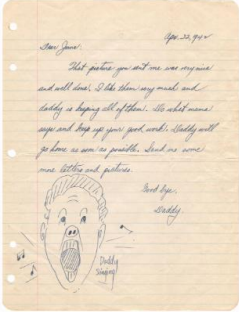 Apr. 22, 1942
Dear Junie.
That picture you sent me was very nice
and well done. I like them very much and
daddy is keeping all of them. Do what mama
says and keep up your good work. Daddy will
go home as soon as possible. Send me some
more letters and pictures.
Good bye.
Daddy.
Daddy
Singing